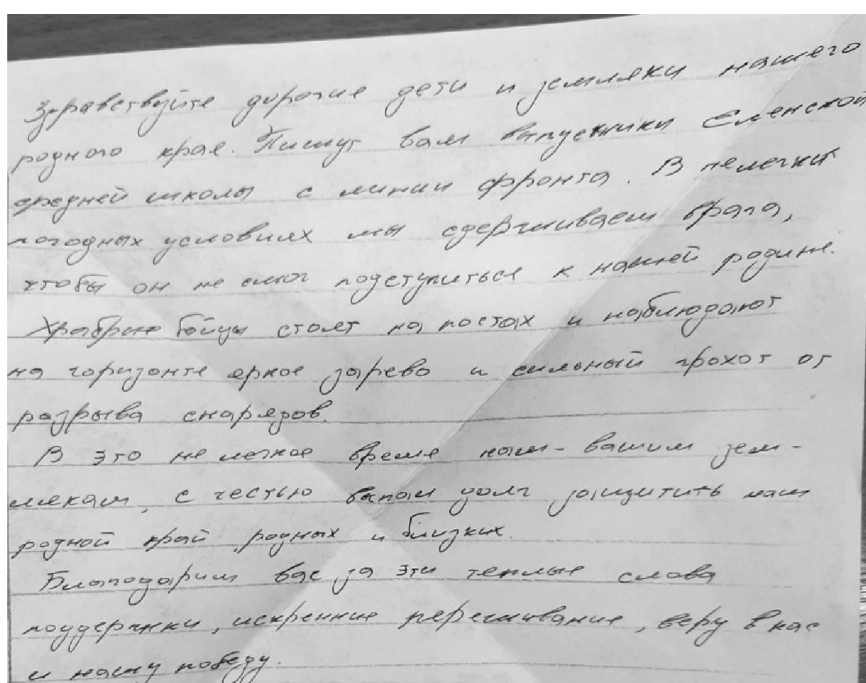 Здравствуйте дорогие дети и земляки нашего
родного края. Пишут вам выпускники Еленской
средней школы с линии фронта. В нелегких
погодных условиях мы сдерживаем врага,
чтобы он не смог подступиться к нашей родине.
Храбрые бойцы стоят на постах и наблюдают
на горизонте яркое зарево и сильный грохот от
разрыва снарядов.
В это не легкое время нам - вашим зем-
лякам, с честью выпал долг защитить наш
родной край, родных и близких.
Благодарим вас за эти теплые слова
поддержки, искренние переживание, веру в нас
и нашу победу.